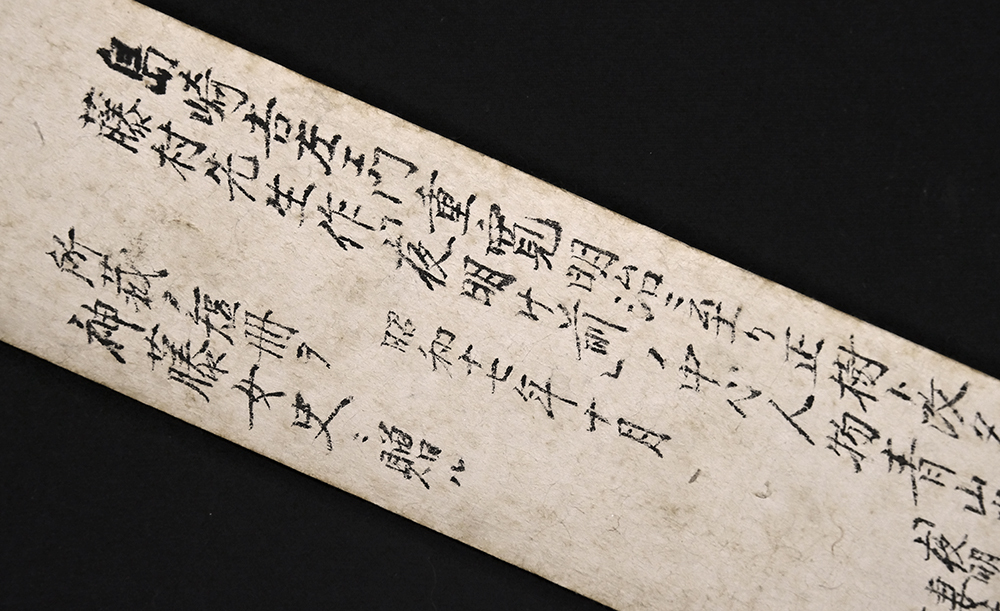 島崎吉左エ門重寛明治ニ至リ正樹ト改
藤村先生作「夜明け前」ノ中心人物青山
昭和十七年十月
夜明
所蔵ノ短冊ヲ
神藤女史ニ贈ル